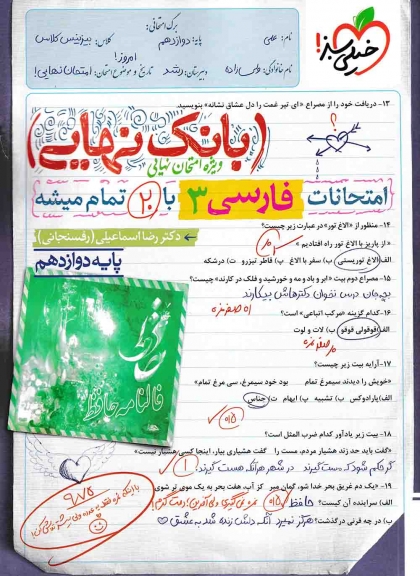 خیلی سبز!
برگ امتحانی:
نام: علی
پایه: دوازدهم
کلاس: بیزینس کلاس
نام خانوادگی:
دبیرستان: رشد
تاریخ و موضوع امتحان: امروز! امتحان نهایی!
۱۳- دریافت خود را از مصراع «ای تیر غمت را دل عشاق نشانه» بنویسید.
(بانک نهایی)
ویژه امتحان نهایی
امتحانات فارسی ۳ با ۲۰ تمام میشه
دکتر رضا اسماعیلی (رفسنجانی)
پایه دوازدهم
۱۴- منظور از «الاغ تور» در عبارت زیر چیست؟
«از پاریز با الاغ تور راه افتادیم.»
الف) الاغ توریستی ب) سفر با الاغ پ) قاطر تیزرو ت) درشکه
۱۵- مصراع دوم بیت «ابر و باد و مه و خورشید و فلک در کارند» چیست؟
بچه‌جان درس نخوان دکترهاش بیکارند
۱۶- کدام گزینه «مرکب اتباعی» است؟
الف) قوقولی قوقو ب) لات و لوت
۱۷- آرایه بیت زیر چیست؟
«خویش را دیدند سیمرغ تمام بود خود سیمرغ، سی مرغ تمام»
الف) پارادوکس ب) تشبیه پ) ایهام ت) جناس
حافظ
فالنامه حافظ
۱۸- بیت زیر یادآور کدام ضرب المثل است؟
«گفت باید حد زند هشیار مردم، مست را گفت هشیاری بیار، اینجا کسی هشیار نیست»
گر حکم شود که مست گیرند در شهر هر آنکه هست گیرند
۱۹- «یک دم غریق بحر خدا شو، گمان مبر کز آب هفت بحر به یک موی تر شوی»
الف) سراینده آن کیست؟ حافظ
ب) در چه قرنی درگذشت؟ هرگز نمیرد آنکه دلش زنده شد به عشق